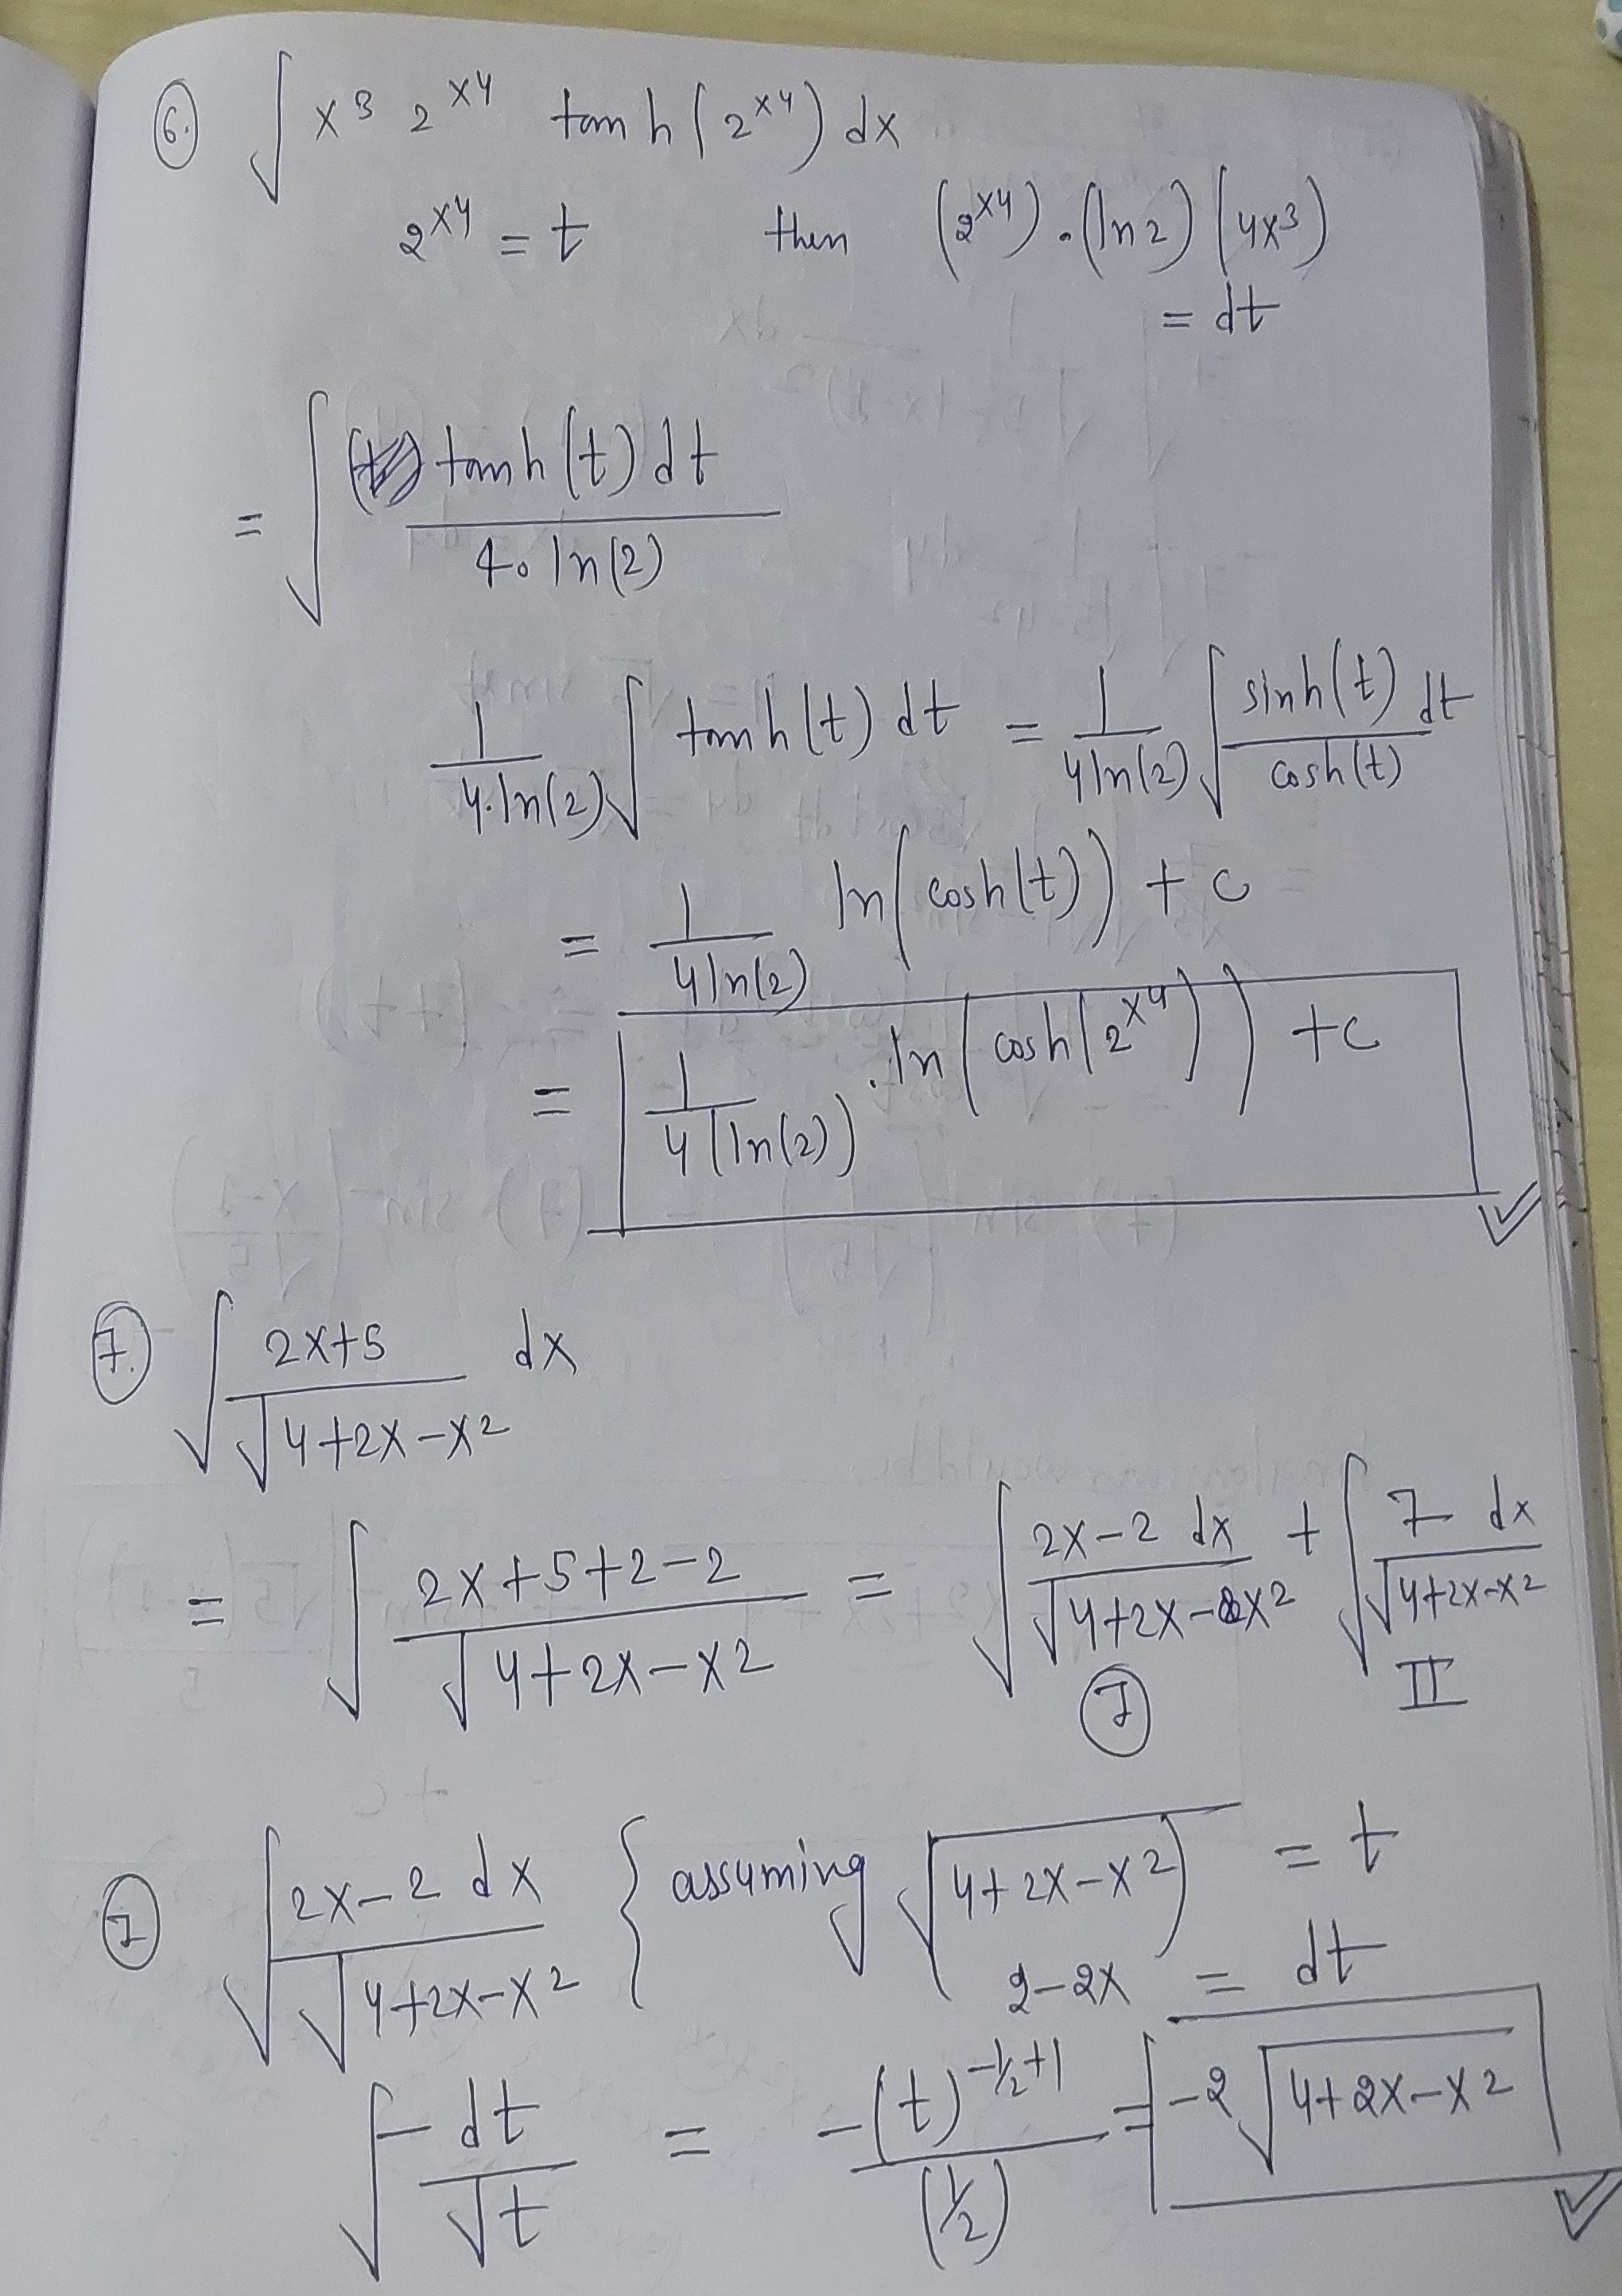 6. ∫ x³ 2^x⁴ tanh(2^x⁴) dx
2^x⁴ = t then (2^x⁴)·(ln 2)(4x³)
= dt
= ∫ tanh(t) dt / 4·ln(2)
1/(4·ln(2)) ∫ tanh(t) dt = 1/(4ln(2)) ∫ sinh(t)/cosh(t) dt
= 1/(4ln(2)) ln(cosh(t)) + c
= 1/(4(ln(2))) ·ln(cosh(2^x⁴)) + c
7. ∫ (2x+5)/√(4+2x-x²) dx
= ∫ (2x+5+2-2)/√(4+2x-x²) = ∫ (2x-2 dx)/√(4+2x-x²) + ∫ (7 dx)/√(4+2x-x²)
I II
I ∫ (2x-2 dx)/√(4+2x-x²) { assuming √(4+2x-x²) = t
2-2x = dt
∫ -dt/√t = -(t)^(-1/2+1)/(1/2) = -2√(4+2x-x²)